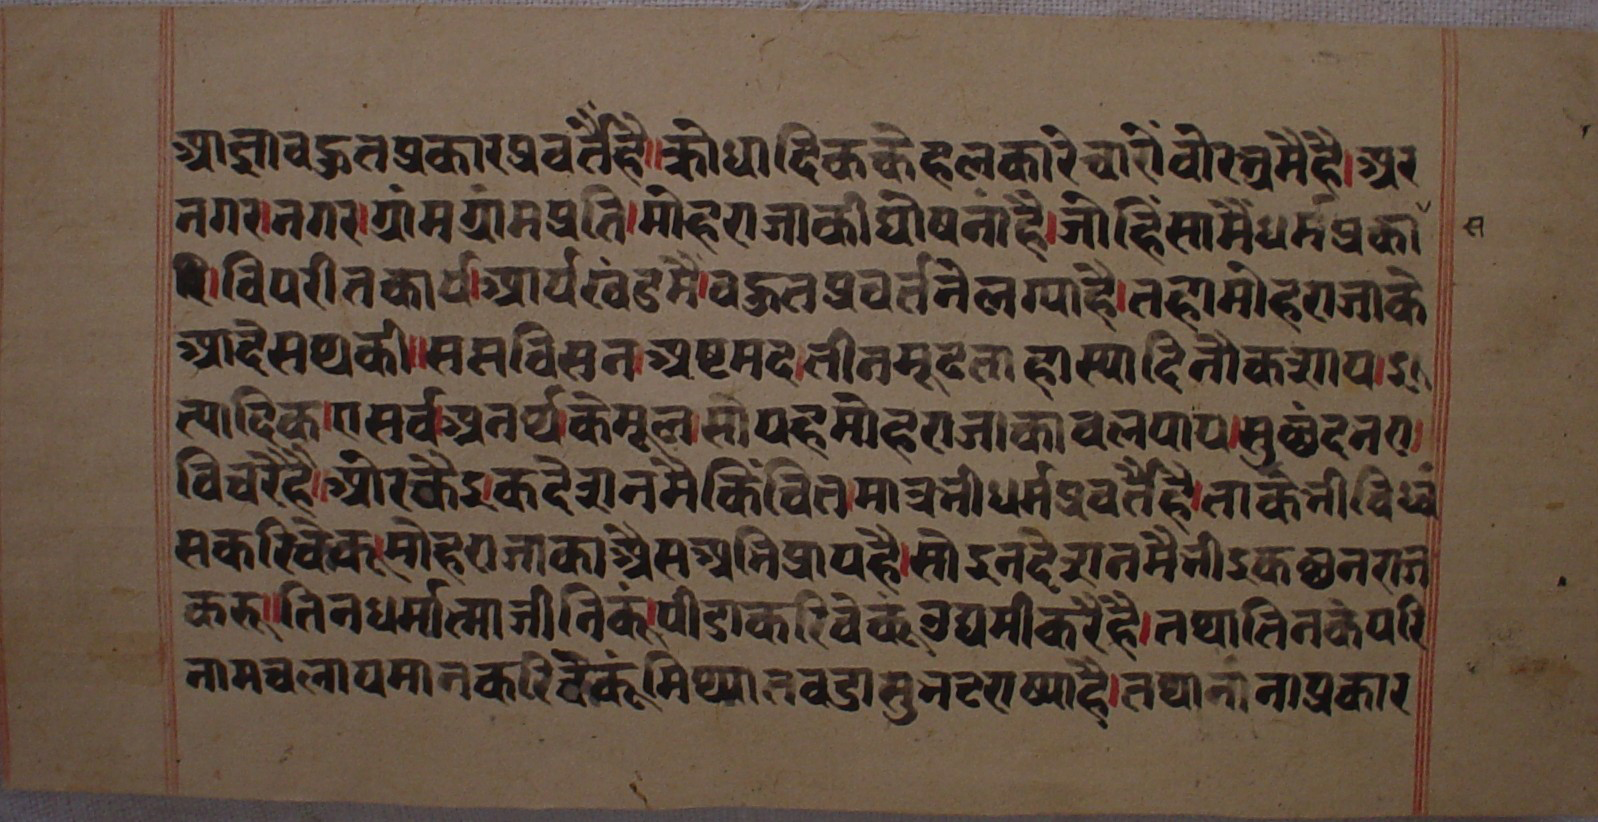 आज्ञा वहुत प्रकार प्रवर्तै है॥ क्रोधादिक के हलकारे चारों वोर भ्रमै है। अर
नगर। नगर। ग्रांम ग्रांम प्रति। मोह राजा की घोषनां है। जो हिंसा मैं धर्म प्रका
स
रि। विपरीत कार्य। आर्य खंड मै। वहुत प्रवर्तने लग्या है। तहा मोह राजा के
आदेस थकी॥ सप्त विसन। अष्ट मद। तीन मूढता हास्यादि नोकषाय। इ
त्यादिक। ए सर्व। अनर्थ। के मूल। सो यह मोह राजा का वल पाय। सुछंद भए।
विचरै है॥ और कैइ। क देशन मै किंचित। मात्र भी धर्म प्रवर्तै है। ताकै भी विध्वं
स करिवेकू। मोह राजा का अैस अभिप्राय है। सो इन देशन मै भी इक छत्र राज
करू॥ तिन धर्मात्मा जीनिकूं। पीडा करिवेकूं उद्यमी करै है। तथा तिनके परि
नाम चलायमान करिवैकूं मिथ्यात वडा सुभट राष्या है। तथा नांना प्रकार